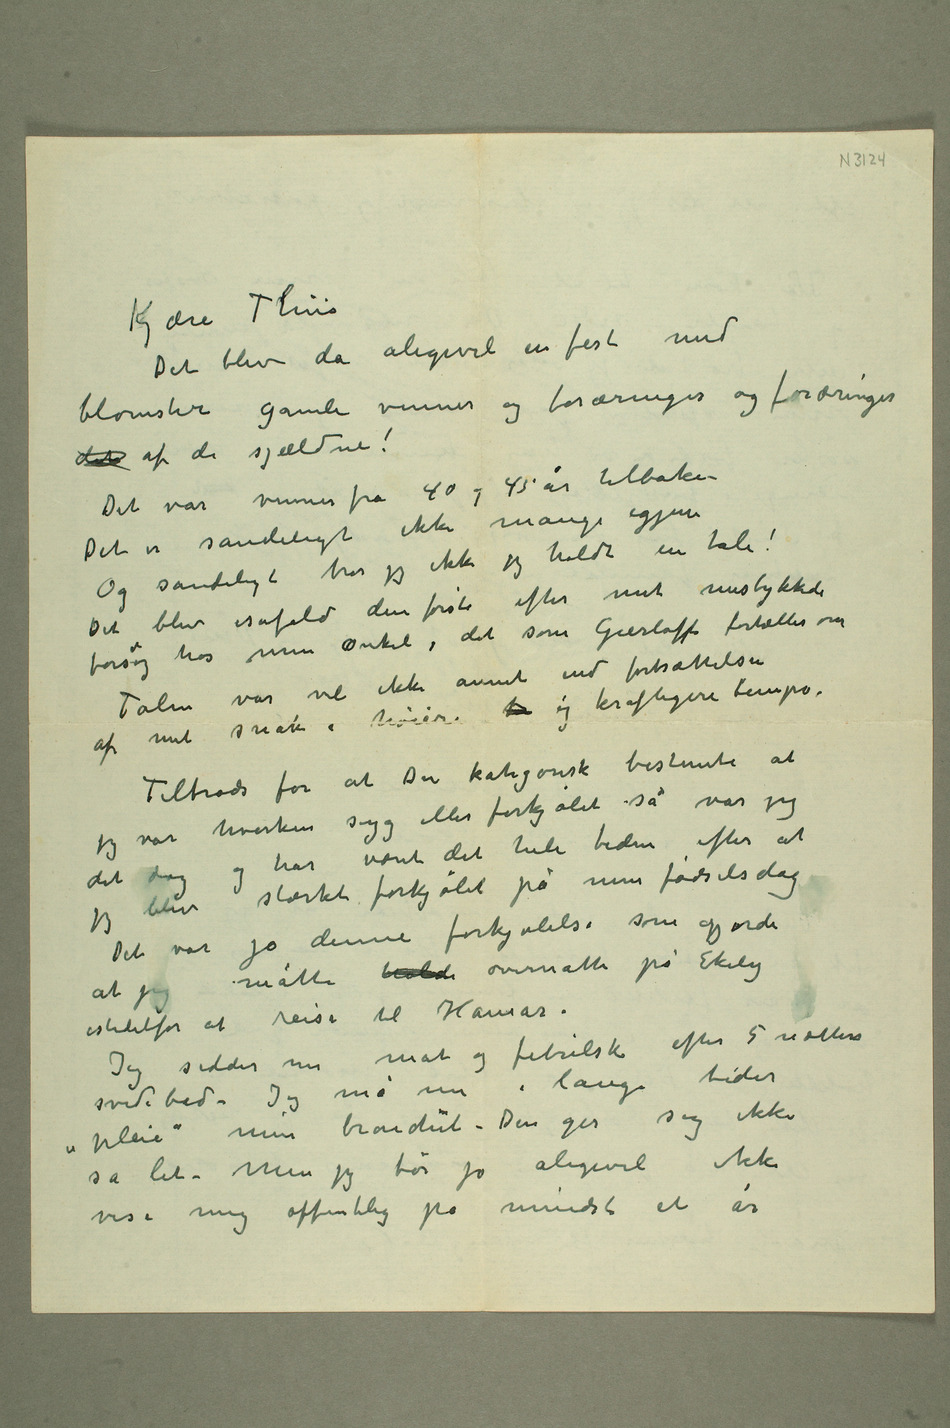 N 3124
Kjære Thiis
Det blev da aligevel en fest med
blomster gamle venner og foræringer og foræringer
af de sjældne!
Det var venner fra 40 og 45 år tilbake –
Det er sandeligt ikke mange igjen
Og sandeligt tror jeg ikke jeg holdt en tale!
Det blev isåfald den første efter mit mislykkede
forsøg hos min onkel, det som Gierløff fortæller om
Talen var vel ikke annet end fortsættelse
af mit snak i høiere og kraftigere tempo.
Tiltrods for at Du kategorisk bestemte at
jeg var hverken syg eller forkjølet så var jeg
det dog og har været det hele tiden efter at
jeg blev stærkt forkjølet på min fødselsdag
Det var jo denne forkjølelse som gjorde
at jeg måtte overnatte på Ekely
istedetfor at reise til Hamar.
Jeg sidder nu mat og febrilsk efter 5 nætters
svedebad – Jeg må nu i lange tider
„pleie“ min bronchit – Den ger sig ikke
så let – Men jeg bør jo aligevel ikke
vise mig offentlig på mindst et år